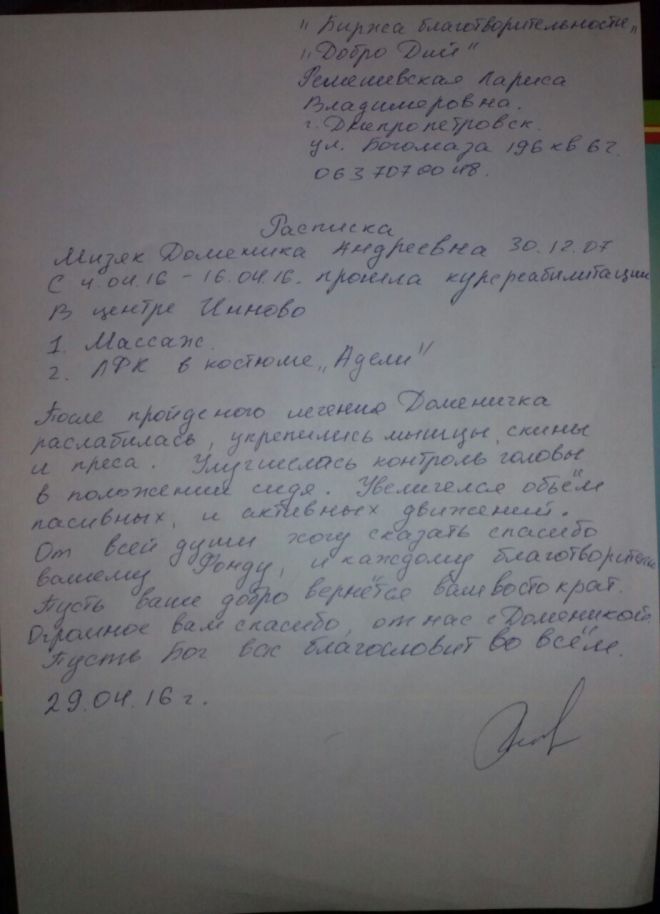 "Биржа благотворительности"
"Добро Дий"
Ремешевская Лариса
Владимировна.
г. Днепропетровск.
ул. Богомаза 196 кв 62.
063 707 00 48.
Расписка
Мизяк Доменика Андреевна 30.12.07
С 4.04.16 - 16.04.16. прошла курс реабилитации
В центре Инново
1. Массаж.
2. ЛФК в костюме "Адели"
После пройденого лечения Доменичка
раслабилась, укрепились мышцы, спины
и преса. Улучшелась контроль головы
в положении сидя. Увеличелся объём
пасивных, и активных движений.
От всей души хочу сказать спасибо
вашему Фонду, и каждому
Пусть ваше добро вернётся вам во сто крат.
Огромное вам спасибо, от нас с Доменикой.
Пусть Бог вас благословит во всём.
29.04.16 г.